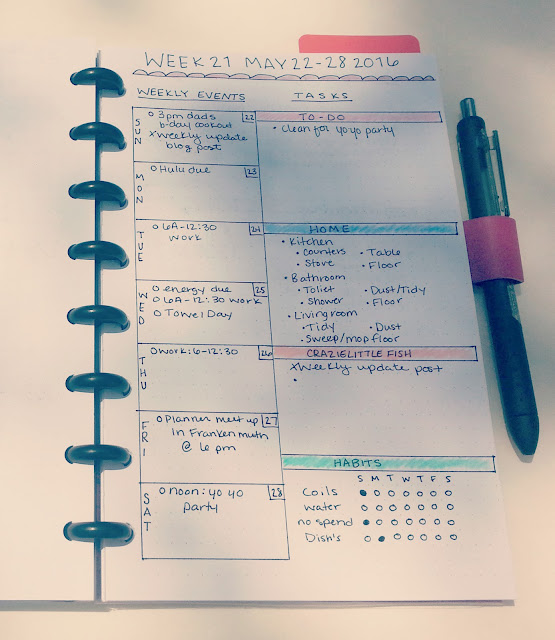 WEEK 21 MAY 22-28 2016
WEEKLY EVENTS
SUN
22
3pm dads
b-day cookout
xWeekly update
blog post
MON
23
Hulu due
TUE
24
6A-12:30
work
WED
25
energy due
6A-12:30 work
Towel Day
THU
26
work: 6-12:30
FRI
27
Planner meet up
in Frankenmuth
@ 6 pm
SAT
28
noon: yo yo
party
TASKS
TO-DO
• Clean for yo yo party
HOME
• Kitchen
• Counters • Table
• Stove • Floor
• Bathroom
• Toliet • Dust/Tidy
• Shower • Floor
• Livingroom
• Tidy • Dust
• Sweep/mop floor
CRAZIELITTLEFISH
xWeekly update post
HABITS
S M T W T F S
Coils
water
no spend
Dish's